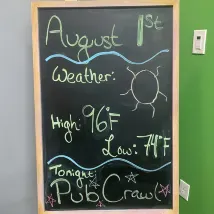 August 1st
Weather:
High: 96°F
Low: 74°F
Tonight:
Pub Crawl